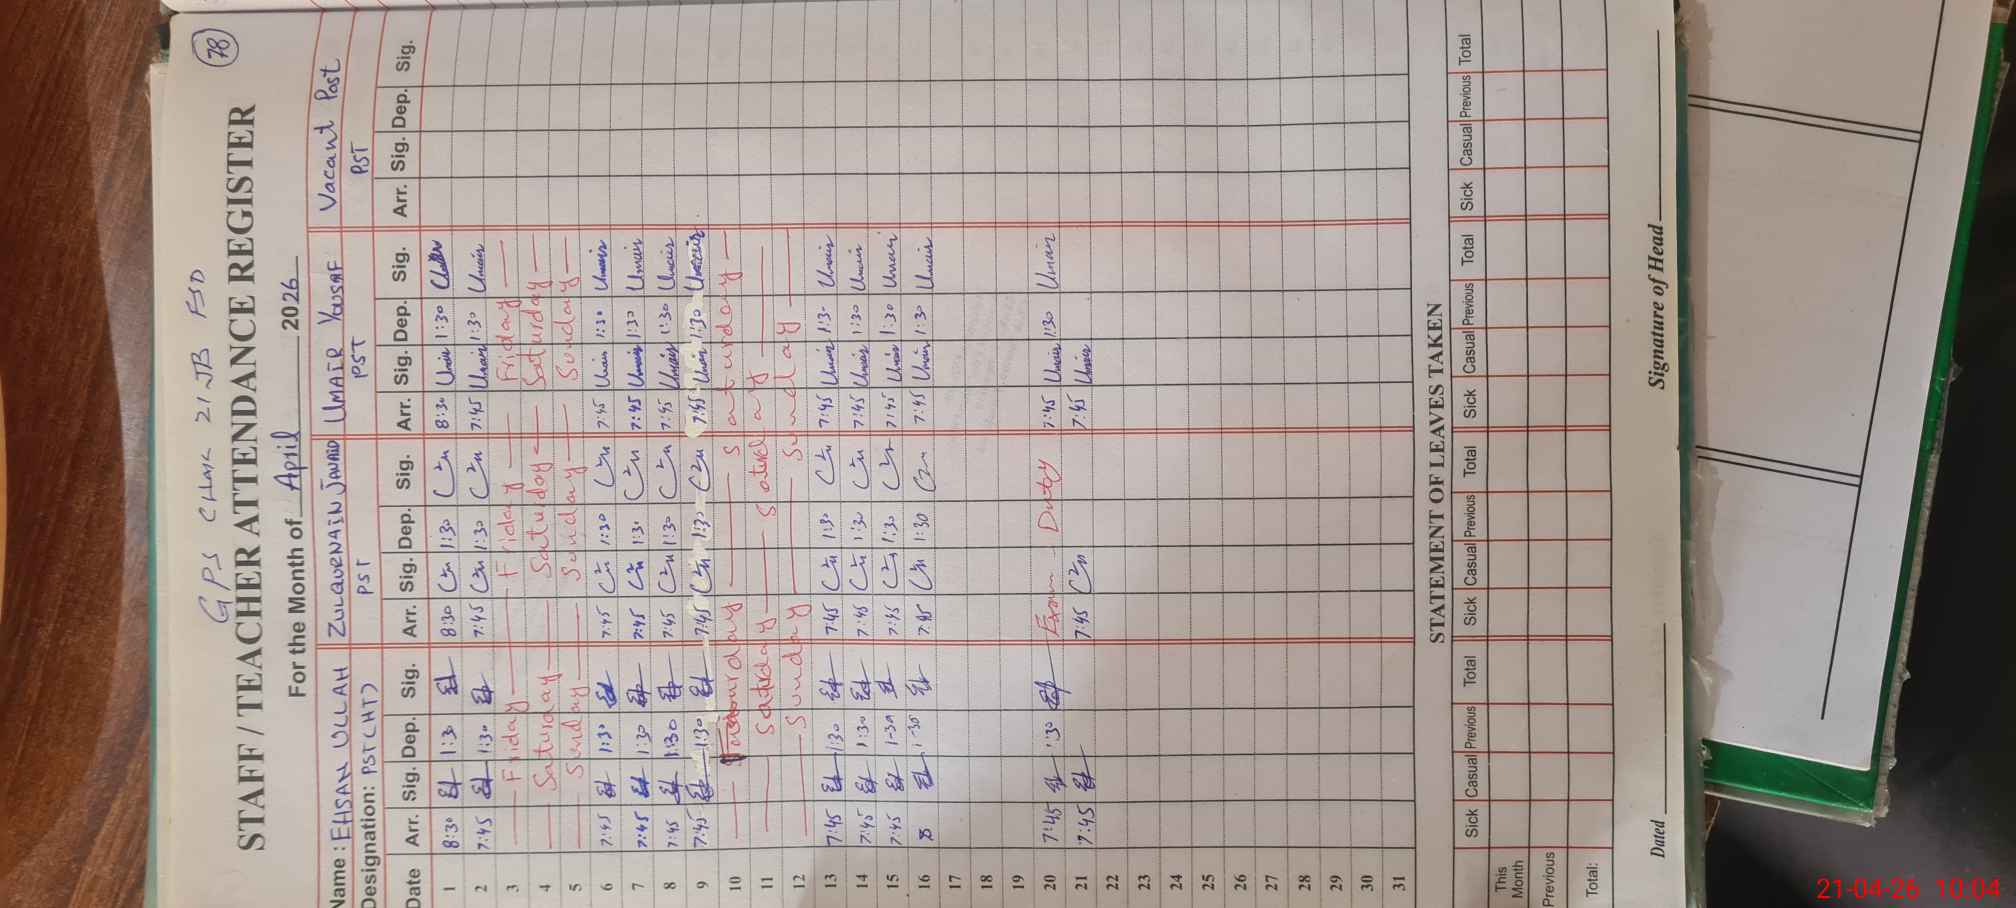 78
GPS CHAK 21 JB FSD
STAFF / TEACHER ATTENDANCE REGISTER
For the Month of April 2026
Name : EHSAN ULLAH ZULQVERNAIN JAVAID UMAIR YOUSAF Vacant Post
Designation: PST(CHT) PST PST PST
Date Arr. Sig. Dep. Sig. Arr. Sig. Dep. Sig. Arr. Sig. Dep. Sig. Arr. Sig. Dep. Sig.
1 8:30 1:30 8:30 1:30 8:30 Umair 1:30
2 7:45 1:30 7:45 1:30 7:45 Umair 1:30 Umair
3 Friday Friday Friday
4 Saturday Saturday Saturday
5 Sunday Sunday Sunday
6 7:45 1:30 7:45 1:30 7:45 Umair 1:30 Umair
7 7:45 1:30 7:45 1:30 7:45 Umair 1:30 Umair
8 7:45 1:30 7:45 1:30 7:45 Umair 1:30 Umair
9 7:45 1:30 7:45 1:30 7:45 Umair 1:30 Umair
10 Saturday
11
12 Sunday Sunday Sunday
13 7:45 1:30 7:45 1:30 7:45 Umair 1:30 Umair
14 7:45 1:30 7:45 1:30 7:45 Umair 1:30 Umair
15 7:45 1-30 7:45 1:30 7:45 Umair 1:30 Umair
16 8 1-30 7:45 1:30 7:45 Umair 1:30 Umair
17
18
19
20 7:45 1:30 Exam Duty 7:45 Umair 1:30 Umair
21 7:45 7:45 7:45 Umair
22
23
24
25
26
27
28
29
30
31
STATEMENT OF LEAVES TAKEN
Sick Casual Previous Total Sick Casual Previous Total Sick Casual Previous Total Sick Casual Previous Total
This Month
Previous
Total:
Dated Signature of Head
21-04-26 10:04